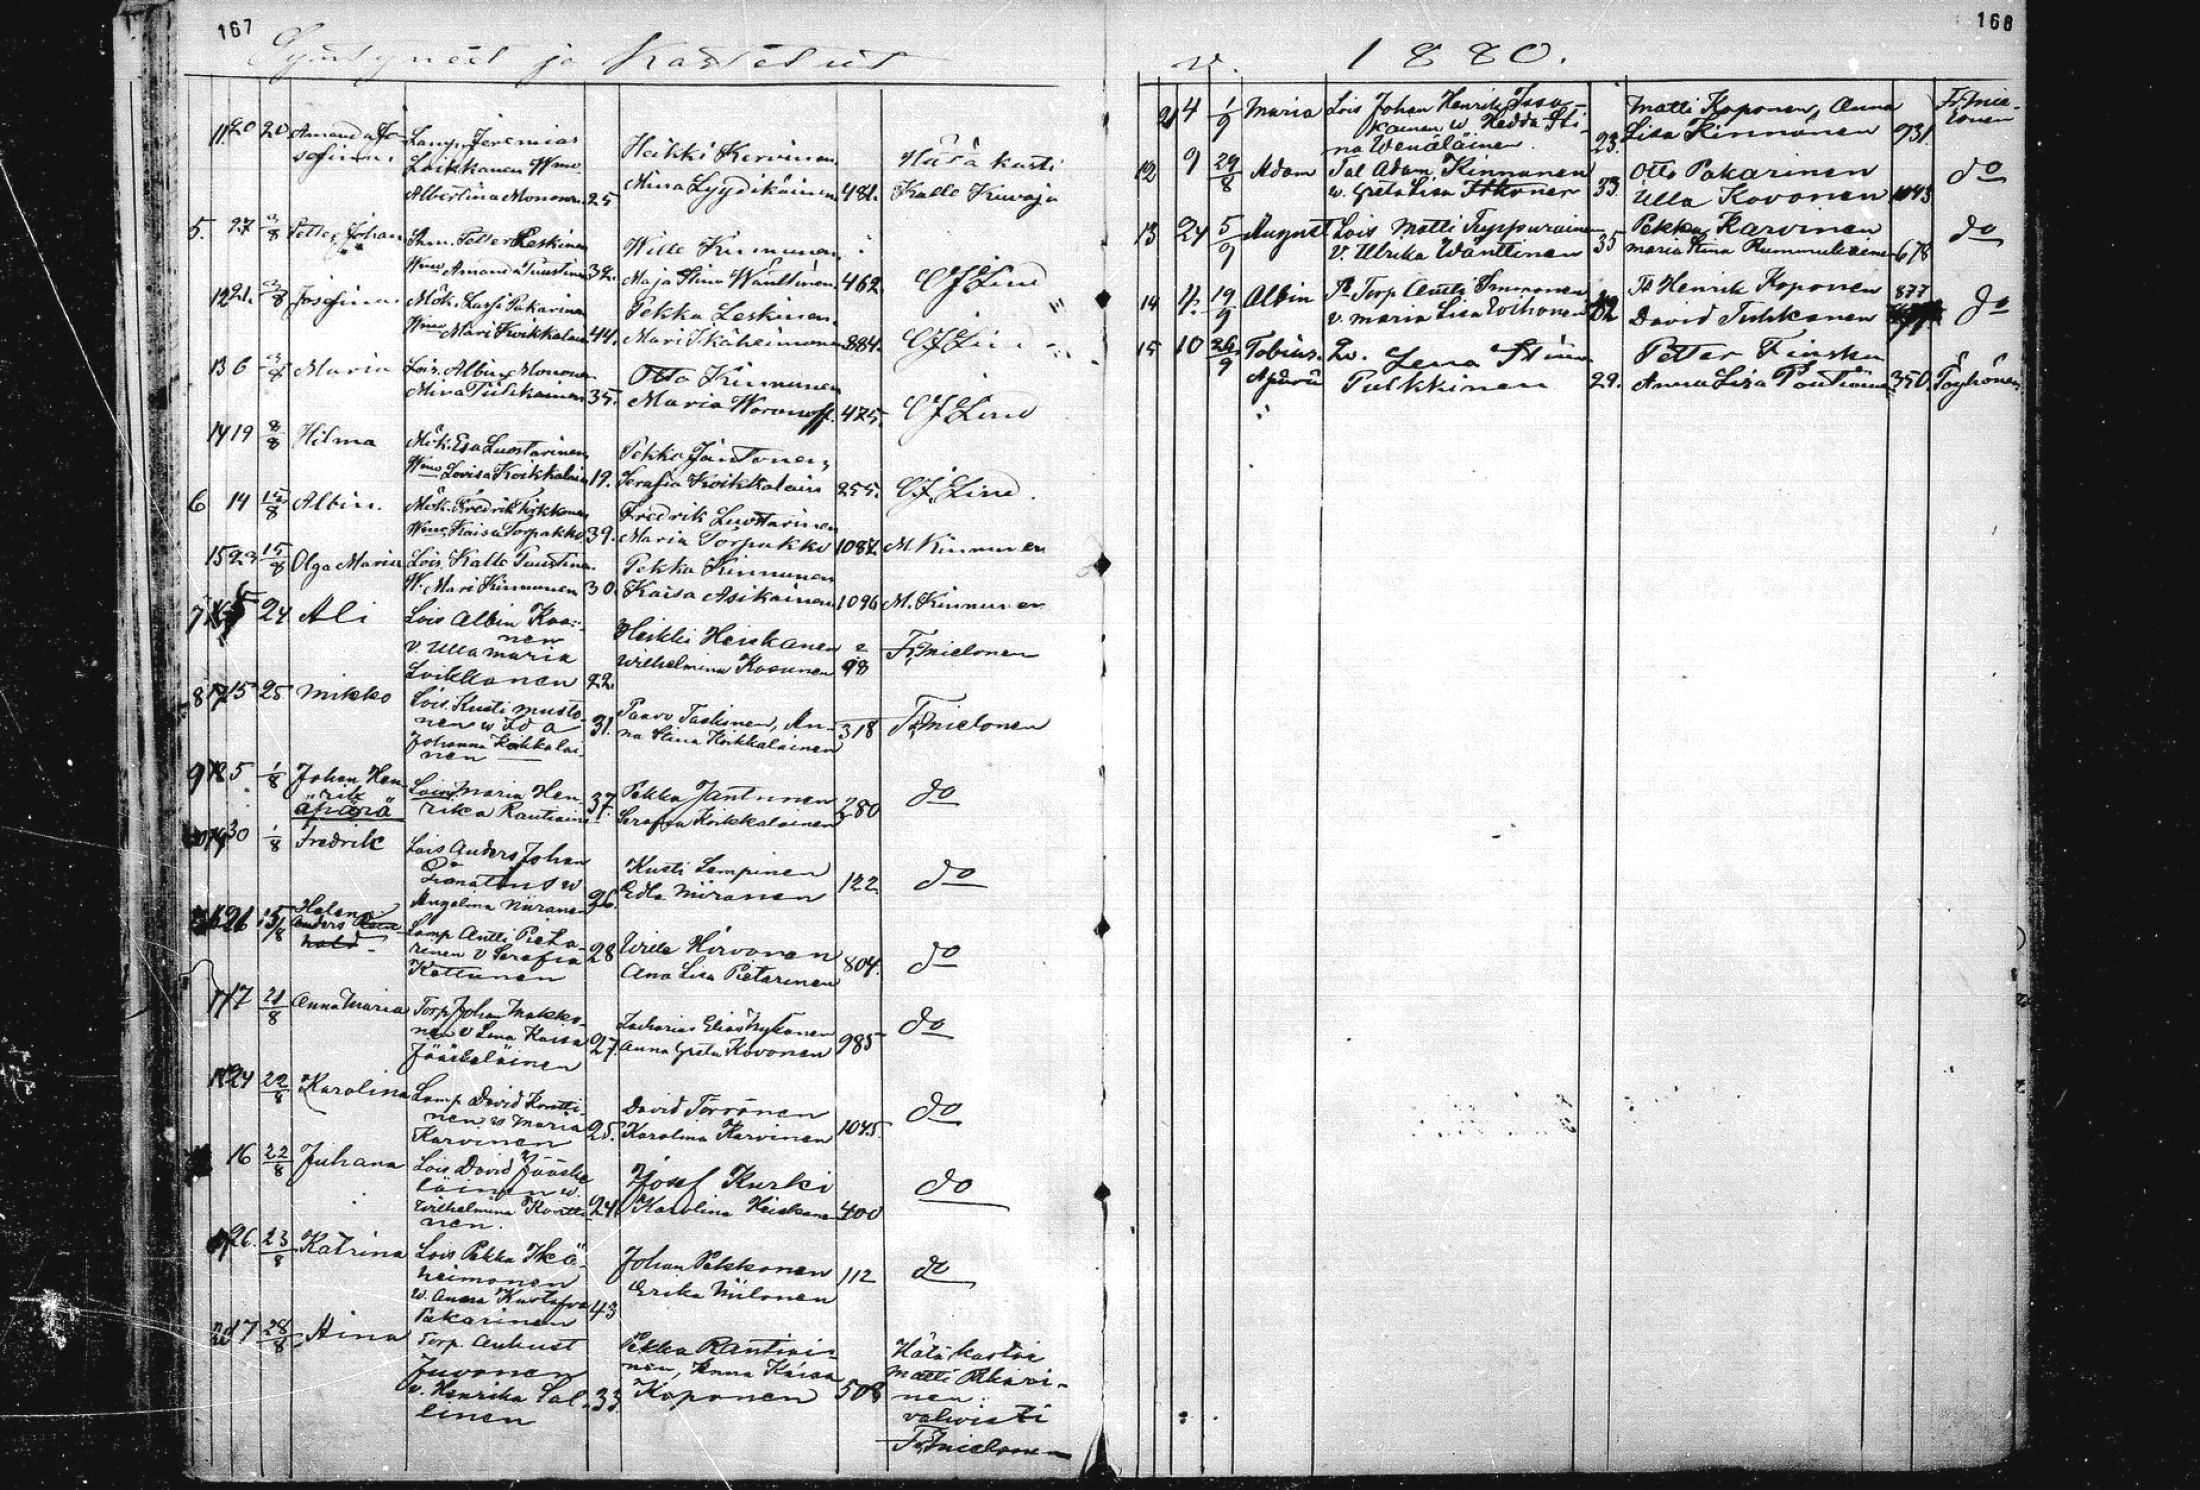 167
Syntyneet ja Kastetut
11. 20 20 Amanda Jo-
sefina
Lamp. Jeremias
Loikkanen Wmo
Albertina Mononen 25
Heikki Kervinen
Mina Lyydikäinen 481.
Hätä kasti
Kalle Kuvaja
5. 27 Petter Johan
Petter Leskinen
Wmo Amanda Puustinen 32.
Wille Kinnunen
Maja Stina Wänttinen 462.
C J Lind
12 21. Josefina
Mök. Lassi Pakarinen
Wmo Mari Koikkalain 44.
Pekka Leskinen
Mari Ikäheimonen 884.
C J Lind
13 6 Maria
Lois. Albin Mononen
Mina Tuhkainen 35.
Otto Kinnunen
Maria Woronoff. 475.
C J Lind
14 19 8/8 Hilma
Mök. Esa Luostarinen
Wmo Lovisa Koikkalain 19.
Pekka Jantonen,
Serafia Koikkalain 255.
C J Lind.
6 14 15/8 Albin.
Mök. Fredrik Pirkkonen
Wmo Kaisa Torpakko 39.
Fredrik Luostarinen
Maria Torpakko 1087.
M. Kinnunen
15 23 15/8 Olga Maria
Lois. Kalle Puustinen
W. Mari Kinnunen 30.
Pekka Kinnunen
Kaisa Asikainen 1096
M. Kinnunen
7 5 24 Ali
Lois Albin Koo-
nen
v. Ulla Maria
Loikkanen 22.
Heikki Heiskanen
Wilhelmina Kosunen 98
Fr. Mielonen
8 17 15 25 Mikko
Lois. Kusti Musto-
nen w Ida
Johanna Koikkalai-
nen 31.
Paavo Taskinen, An-
na Stina Koikkalainen 318
Fr. Mielonen
9 18 5 1/8 Johan Hen-
rik
äpärä
Lois Maria Hen-
rika Rautiain 37.
Pekka Jantunen
Serafia Koikkalainen 280
do
30 1/8 Fredrik
Lois Anders Johan
Granatins w
Angelina Niiranen 26.
Kusti Lempinen
Edla Niiranen 122.
do
21 15/8 Helena
Anders
Lamp Antti Pieta-
rinen v Serafia
Kettunen 28
Wille Hirvonen
Ana Lisa Pietarinen 804.
do
17 17 21/8 Anna Maria
Torp Johan Makko-
nen v Lena Kaisa
Jääskeläinen 27.
Zacharias Elias Nykanen
Anna Greta Kovonen 985
do
24 22/8 Karolina
Lamp David Kontti-
nen w Maria
Karvinen 25.
David Torvonen
Karolina Karvinen 1045.
do
16 22/8 Juhana
Lois David Jääske
läinen w.
Wilhelmina Kontti-
nen. 24.
Josef Kurki
Karolina Heiskanen 400
do
26. 23/8 Katrina
Lois Pekka Ikä-
heimonen
w. Anna Kustafva
Pakarinen 43
Johan Pekkonen
Erika Niilonen 112
do
17 28/8 Stina
Torp. Auhust
Juvonen
v. Henrika Sal-
linen 33.
Pekka Rautiai-
nen, Anna Kaisa
Koponen 508
Hätä kastoi
Matti Pakari-
nen
vahvisti
Fr. Mielonen
v. 1880. 168
21 4 1/9 Maria
Lois Johan Henrik Issa-
kainen w Hedda Sti-
na Wenäläinen. 23.
Matti Koponen, Anna
Lisa Kinnunen 931.
Fr. Mie-
lonen
12 9 29/8 Adam
Tal Adam Kinnunen
w. Greta Lisa Itkonen 33.
Otto Pakarinen
Ulla Kovonen 1043
do
13 24 5/9 August
Lois Matti Tuppurainen
v. Ulrika Wänttinen 35
Pekka Karvinen
Maria Stina Rummukainen 678
do
14 4. 19/9 Albin
Torp Antti Immonen
v. Maria Lisa Toihonen 42
Henrik Koponen 877
David Tuhkanen
do
15 10 26/9 Tobias.
Äpärä
Lena Stina
Pulkkinen 29.
Petter Finska
Anna Lisa Pöntiäinen 350.
Pöyhönen